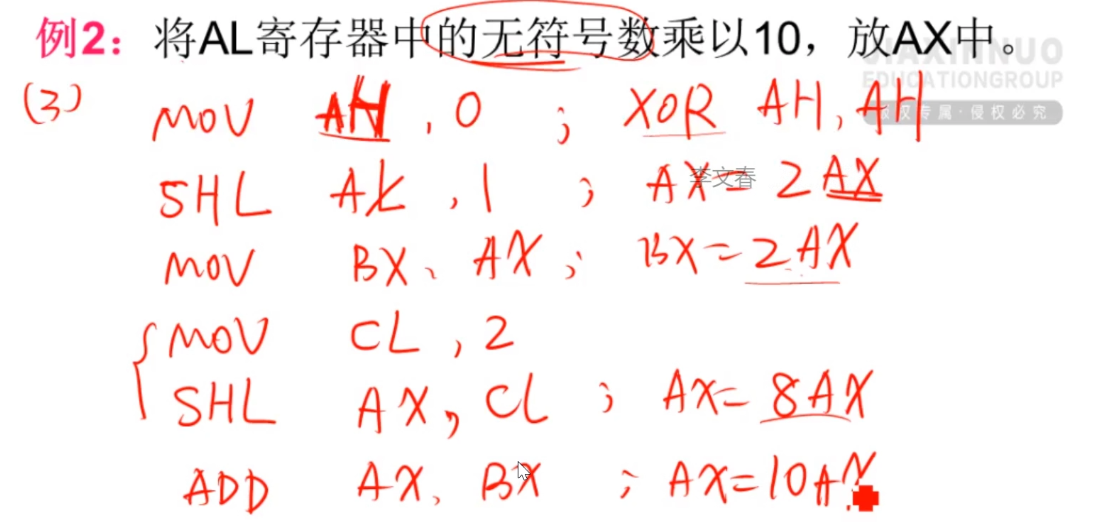 例2：将AL寄存器中的无符号数乘以10，放AX中。
JIAXINNUO
EDUCATIONGROUP
版权专属·侵权必究
(3) MOV AH, 0 ; XOR AH, AH
李文春
SHL AX, 1 ; AX=2AX
MOV BX, AX ; BX=2AX
MOV CL, 2
SHL AX, CL ; AX=8AX
ADD AX, BX ; AX=10AX